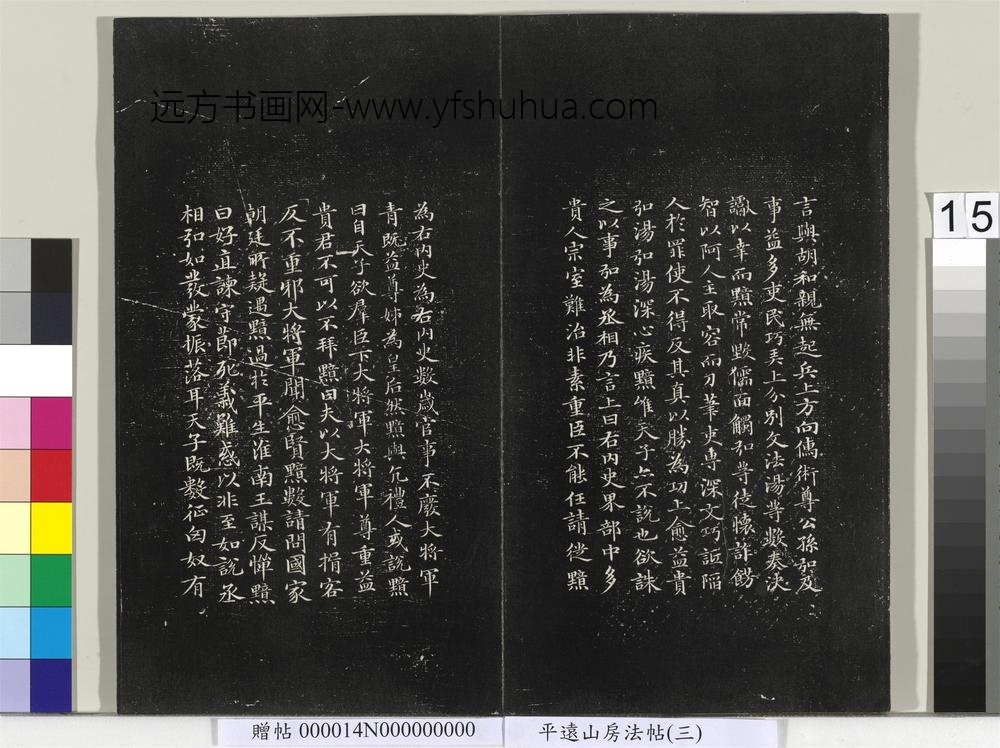 远方书画网-www.yfshuhua.com
言與胡和親無起兵上方向儒術尊公孫弘及
事益多吏民巧弄上分別文法湯等數奏決
讞以幸而黯常毀儒面觸弘等徒懷詐飾
智以阿人主取容而刀筆吏專深文巧詆陷
人於罪使不得反其真以勝為功上愈益貴
弘湯弘湯深心疾黯唯天子亦不說也欲誅
之以事弘為丞相乃言上曰右內史界部中多
貴人宗室難治非素重臣不能任請徙黯
為右內史為右內史數歲官事不廢大將軍
青既益尊姊為皇后然黯與亢禮人或說黯
曰自天子欲羣臣下大將軍大將軍尊重益
貴君不可以不拜黯曰夫以大將軍有揖客
反不重邪大將軍聞愈賢黯數請問國家
朝廷所疑遇黯過於平生淮南王謀反憚黯
曰好直諫守節死義難惑以非至如說丞
相弘如發蒙振落耳天子既數征匈奴有
15
贈帖 000014N000000000
平遠山房法帖(三)